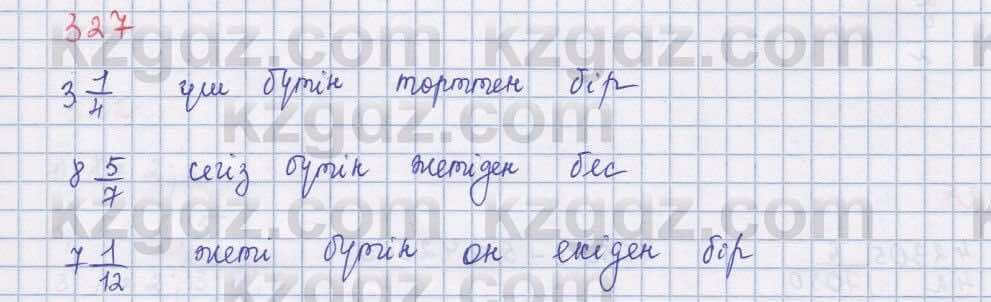 327
3 1/4 үш бүтін торттен бір
8 5/7 сегіз бүтін жетіден бес
7 1/12 жеті бүтін он екіден бір
kzgdz.com kzgdz.com
kzgdz.com
kzgdz.com kzgdz.com
kzgdz.com